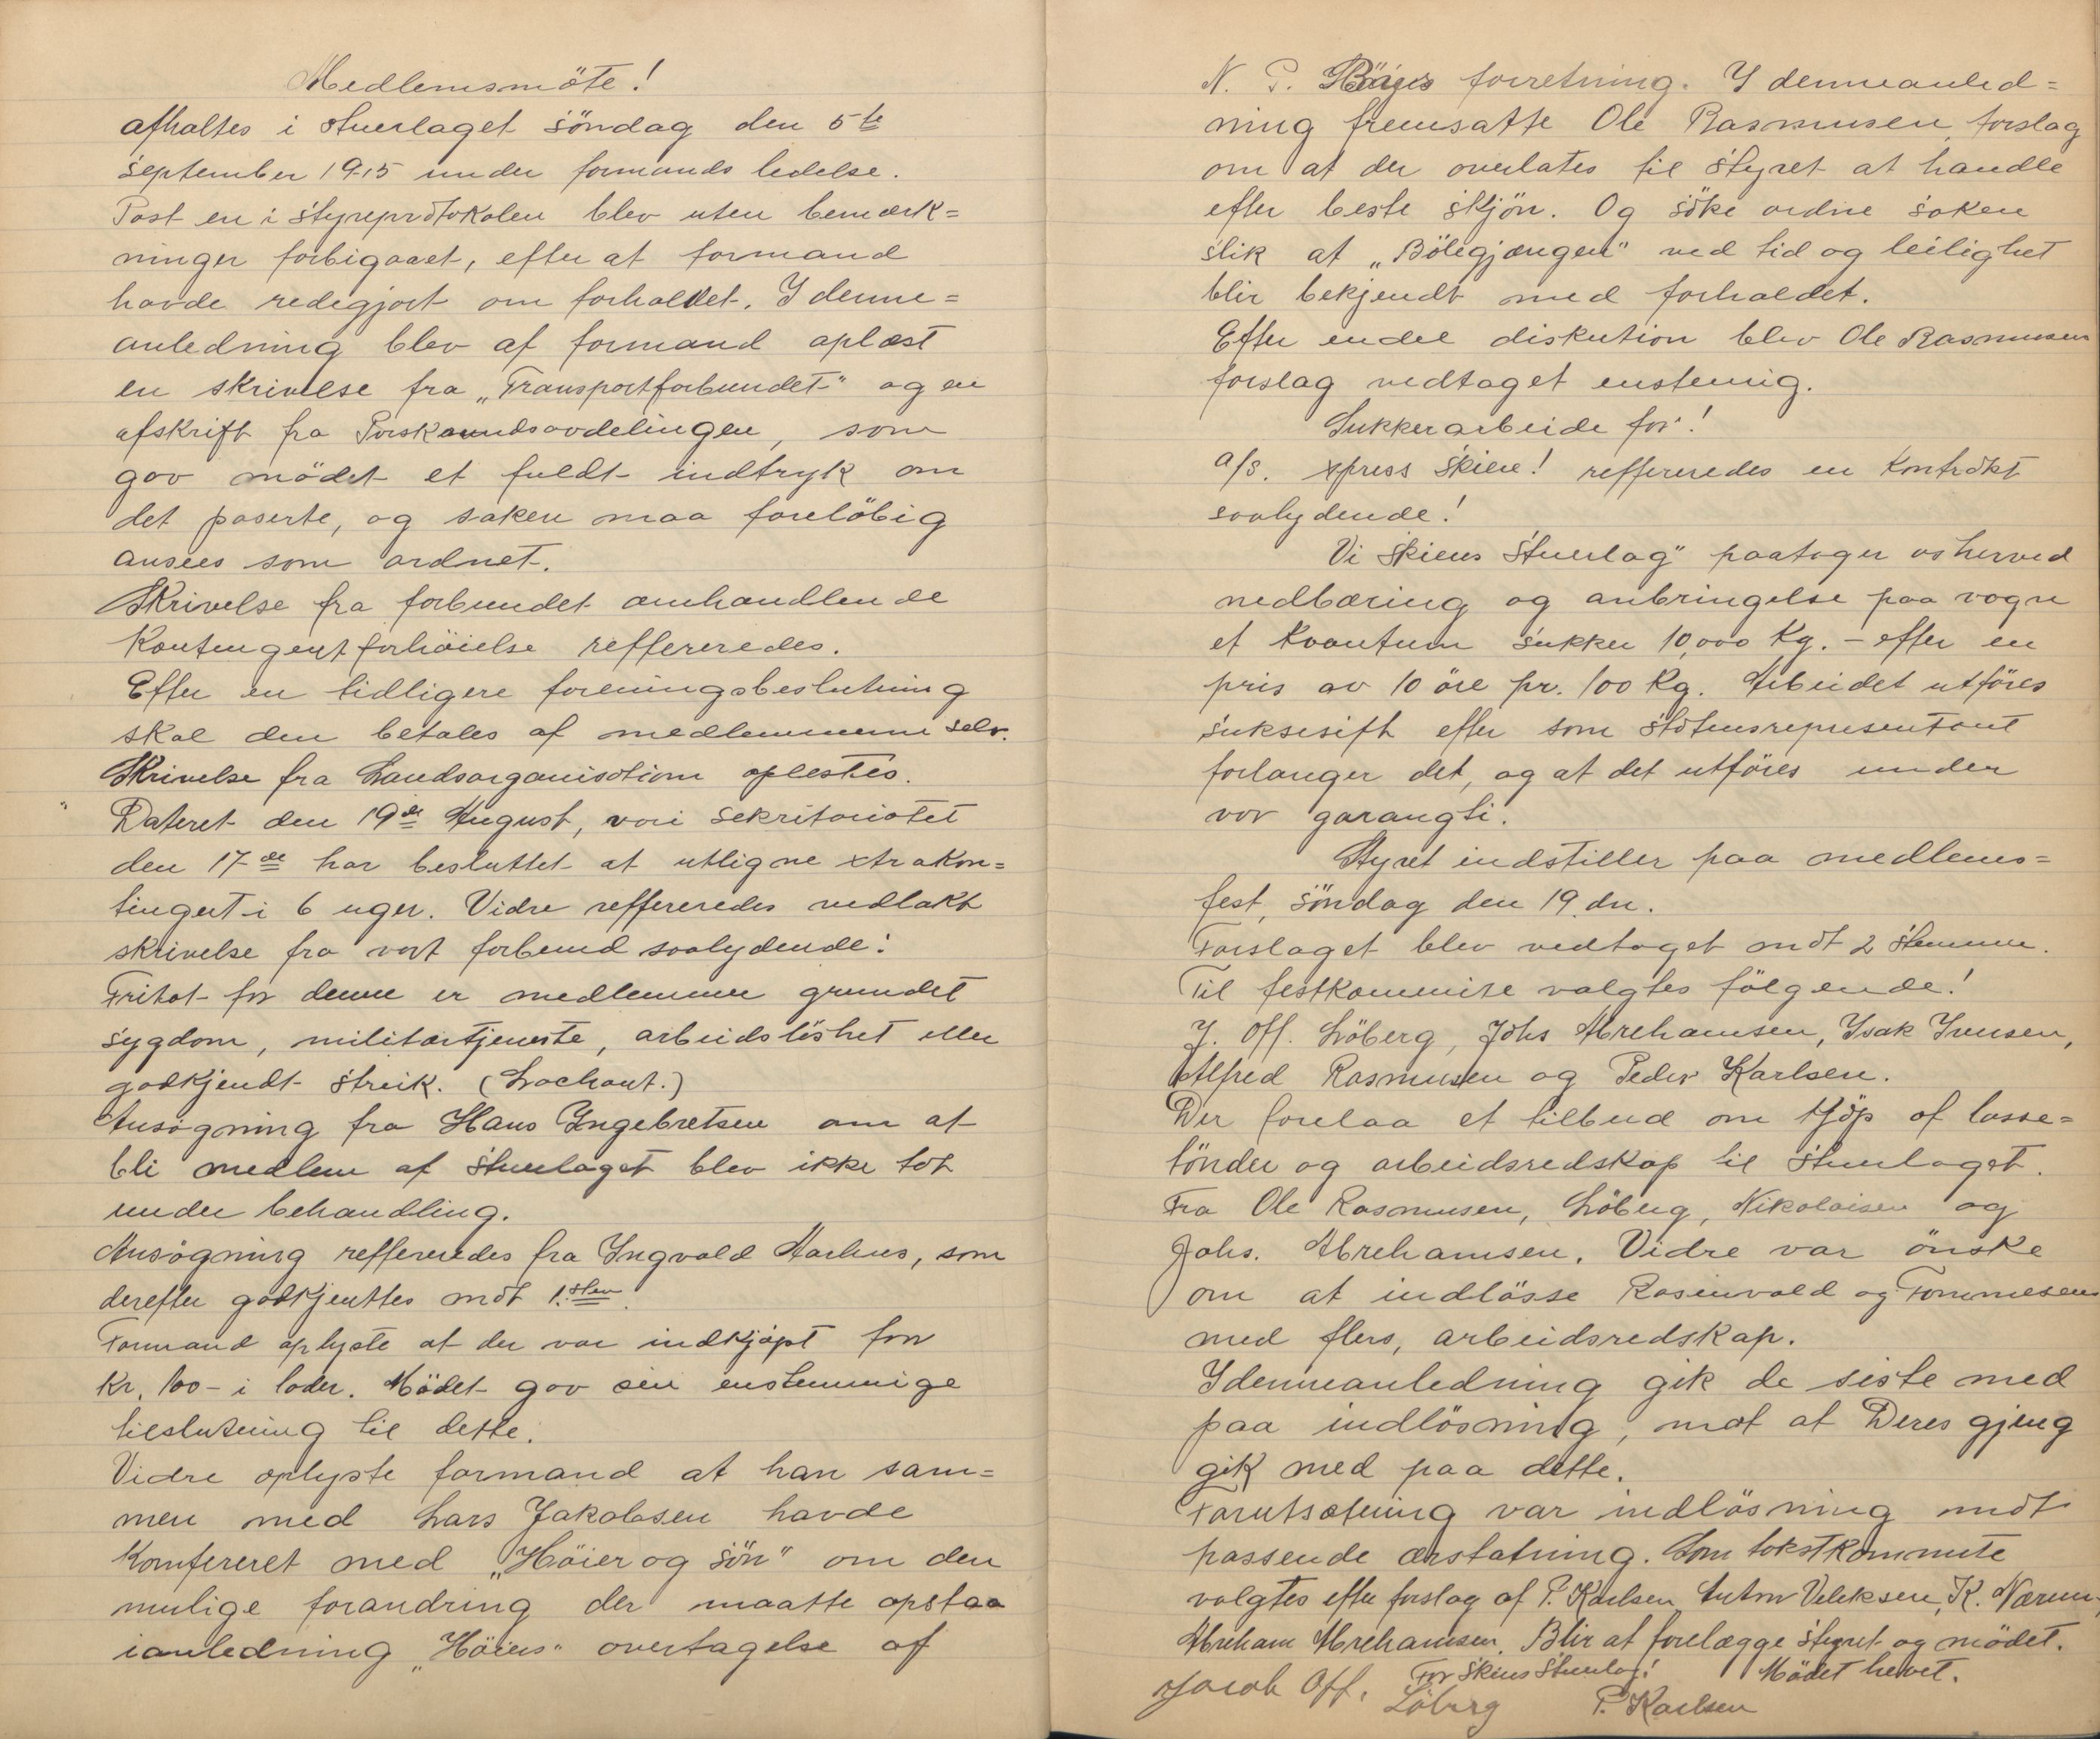 Medlemsmöte!
afholtes i stuerlaget söndag den 5te
September 1915 under formands ledelse.
Post en i styreprotokolen blev uten bemærk=
ninger forbigaaet, efter at formand
havde redegjort om forholdet. I denne=
anledning blev af formand oplæst
en skrivelse fra „Transportforbundet" og en
afskrift fra Porskgrundsavdelingen, som
gav mödet et fuldt indtryk om
det paserte, og saken maa foreløbig
ansees som ordnet.
Skrivelse fra forbundet omhandlende
Kontengentforhöielse reffereredes.
Efter en tidligere foreningsbeslutning
skal den betales af medlemmerne selv.
Skrivelse fra Landsorganisation oplestes.
Dateret den 19de August, vori Sekritariatet
den 17de har besluttet at utligne xtrakon=
tingent i 6 uger. Vidre reffereredes vedlakt
skrivelse fra vort forbund saalydende:
Fritat for denne er medlemmer grundet
sygdom, militærtjeneste, arbeidslöshet eller
godkjendt streik. (Lockout.)
Ansögning fra Hans Ingebretsen om at
bli medlem af stuerlaget blev ikke tat
under behandling.
Ansögning reffereredes fra Ingvald Aarhus, som
derefter godkjenttes mot 1. stem
Formand oplyste at der var indkjöpt for
Kr. 100- i loder. Mödet gav sin enstemmige
tilslutning til dette.
Vidre oplyste formand at han sam=
men med Lars Jakobsen havde
Komfereret med „Höier og Sön" om den
mulige forandring der maatte opstaa
ianledning „Höiers" overtagelse af
N. P. forretning. I denneanled=
ning fremsatte Ole Rasmusen forslag
om at der overlates til Styret at handle
efter beste skjön. Og söke ordne saken
slik at „Bölegjængen" ved tid og leilighet
blir bekjendt med forholdet.
Efter endel diskution blev Ole Rasmusen
forslag vedtaget enstemig.
Sukkerarbeide for!
A/S. xpress Skien! reffereredes en Kontrakt
saalydende!
Vi Skiens Stuerlag" paatager os herved
nedbæring og anbringelse paa vogn
et Kvantum Sukker 10,000 Kg. - efter en
pris av 10 öre pr. 100 Kg. Arbeidet utföres
suksesift efter som Statensrepresentant
forlanger det, og at det utföres under
vor garangti.
Styret indstiller paa medlems=
fest, söndag den 19. dn.
Forslaget blev vedtaget mot 2 stemmer.
Til festkommite valgtes fölgende!
J. Off. Löberg, Johs Abrehamsen, Isak Iversen,
Alfred Rasmusen og Peder Karlsen.
Der forelaa et tilbud om kjöp af losse=
tönder og arbeidsredskap til stuerlaget.
Fra Ole Rasmusen, Löberg, Nikolaisen og
Johs. Abrehamsen. Vidre var önske
om at indlösse Rosenvold og Tommesens
med flers, arbeidsredskap.
Idenneanledning gik de siste med
paa indlösning, mot at Deres gjeng
gik med paa dette.
Forutsætning var indlösning mot
passende ærstatning. Som takstkommite
valgtes efter forslag af P. Karlsen, Anton Veleksen, K. Nærum
Abreham Abrehamsen. Blir at forelægge styret og mödet.
For Skiens Stuerlag! Mödet hevet.
Jacob Off. Löberg P. Karlsen